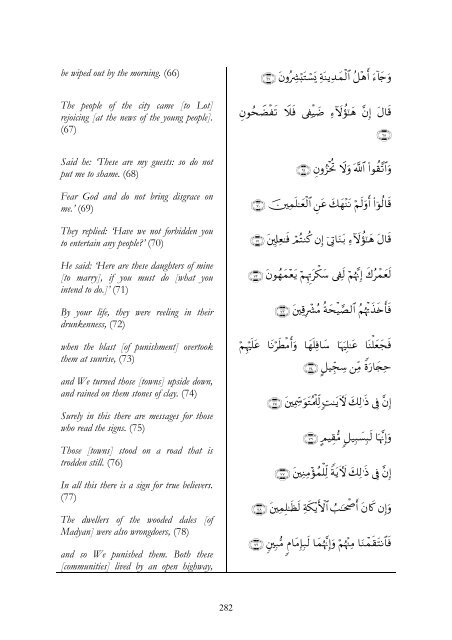 be wiped out by the morning. (66)
The people of the city came [to Lot]
rejoicing [at the news of the young people].
(67)
Said he: ‘These are my guests: so do not
put me to shame. (68)
Fear God and do not bring disgrace on
me.’ (69)
They replied: ‘Have we not forbidden you
to entertain any people?’ (70)
He said: ‘Here are these daughters of mine
[to marry], if you must do [what you
intend to do.]’ (71)
By your life, they were reeling in their
drunkenness, (72)
when the blast [of punishment] overtook
them at sunrise, (73)
and We turned those [towns] upside down,
and rained on them stones of clay. (74)
Surely in this there are messages for those
who read the signs. (75)
Those [towns] stood on a road that is
trodden still. (76)
In all this there is a sign for true believers.
(77)
The dwellers of the wooded dales [of
Madyan] were also wrongdoers, (78)
and so We punished them. Both these
[communities] lived by an open highway,
وَجَآءَ أَهْلُ ٱلْمَدِينَةِ يَسْتَبْشِرُونَ ۝
قَالَ إِنَّ هَـٰٓؤُلَآءِ ضَيْفِى فَلَا تَفْضَحُونِ
وَٱتَّقُوا۟ ٱللَّهَ وَلَا تُخْزُونِ
قَالُوٓا۟ أَوَلَمْ نَنْهَكَ عَنِ ٱلْعَـٰلَمِينَ
قَالَ هَـٰٓؤُلَآءِ بَنَاتِىٓ إِن كُنتُمْ فَـٰعِلِينَ
لَعَمْرُكَ إِنَّهُمْ لَفِى سَكْرَتِهِمْ يَعْمَهُونَ
فَأَخَذَتْهُمُ ٱلصَّيْحَةُ مُشْرِقِينَ
فَجَعَلْنَا عَـٰلِيَهَا سَافِلَهَا وَأَمْطَرْنَا عَلَيْهِمْ
حِجَارَةً مِّن سِجِّيلٍ
إِنَّ فِى ذَٰلِكَ لَـَٔايَـٰتٍ لِّلْمُتَوَسِّمِينَ
وَإِنَّهَا لَبِسَبِيلٍ مُّقِيمٍ
إِنَّ فِى ذَٰلِكَ لَـَٔايَةً لِّلْمُؤْمِنِينَ
وَإِن كَانَ أَصْحَـٰبُ ٱلْأَيْكَةِ لَظَـٰلِمِينَ
فَٱنتَقَمْنَا مِنْهُمْ وَإِنَّهُمَا لَبِإِمَامٍ مُّبِينٍ
282